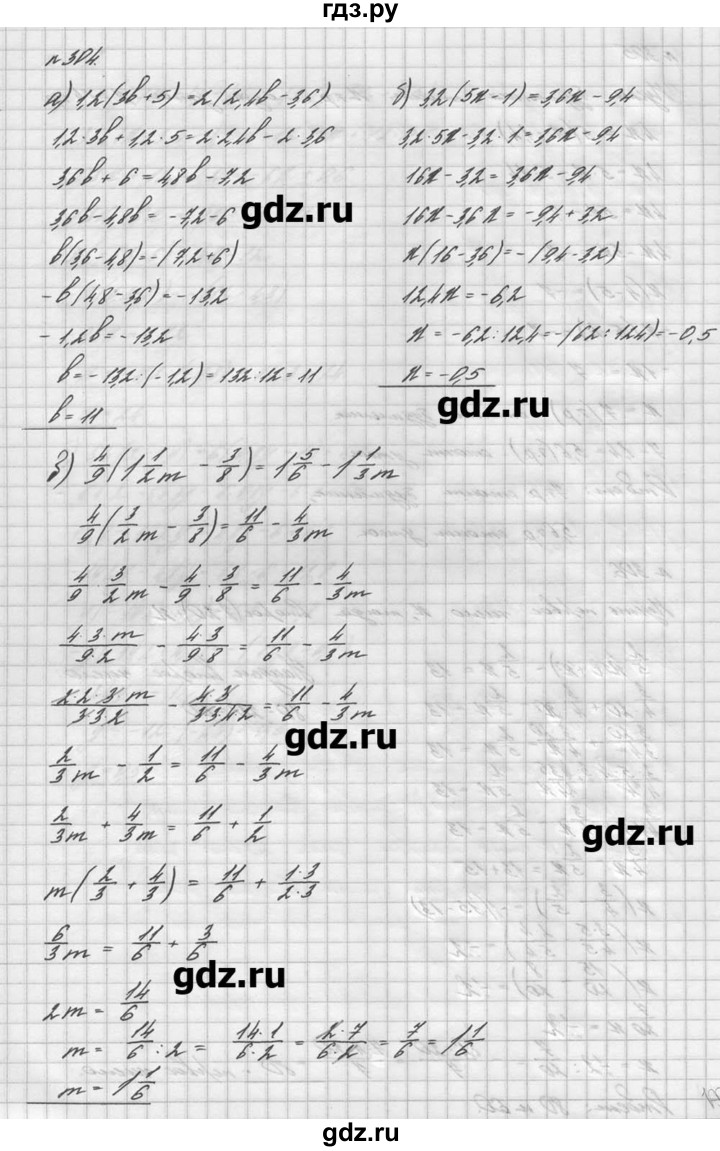 гдз.ру
№ 304.
а) 1,2(3в+5) = 2(2,4в - 3,6)
1,2·3в + 1,2·5 = 2·2,4в - 2·3,6
3,6в + 6 = 4,8в - 7,2
3,6в - 4,8в = -7,2 - 6
в(3,6 - 4,8) = -(7,2 + 6)
-в(4,8 - 3,6) = -13,2
-1,2в = -13,2
в = -13,2 : (-1,2) = 132 : 12 = 11
в = 11
б) 3,2(5х - 1) = 3,6х - 9,4
3,2·5х - 3,2·1 = 3,6х - 9,4
16х - 3,2 = 3,6х - 9,4
16х - 3,6х = -9,4 + 3,2
х(16 - 3,6) = -(9,4 - 3,2)
12,4х = -6,2
х = -6,2 : 12,4 = -(62 : 124) = -0,5
х = -0,5
gdz.ru
gdz.ru
в) 4/9(1 1/2m - 3/8) = 1 5/6 - 1 1/3m
4/9(3/2m - 3/8) = 11/6 - 4/3m
4/9 · 3/2m - 4/9 · 3/8 = 11/6 - 4/3m
4·3·m/9·2 - 4·3/9·8 = 11/6 - 4/3m
2·2·3·m/3·3·2 - 4·3/3·3·4·2 = 11/6 - 4/3m
gdz.ru
2/3m - 1/2 = 11/6 - 4/3m
2/3m + 4/3m = 11/6 + 1/2
gdz.ru
m(2/3 + 4/3) = 11/6 + 1·3/2·3
6/3m = 11/6 + 3/6
gdz.ru
2m = 14/6
m = 14/6 : 2 = 14·1/6·2 = 2·7/6·2 = 7/6 = 1 1/6
m = 1 1/6
gdz.ru